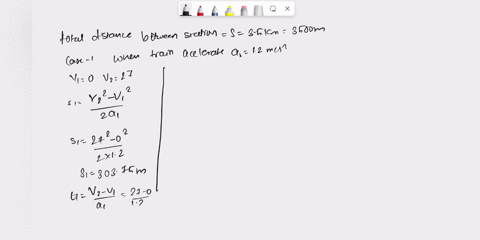 total distance between station = S = 3.5km = 3500m
Case-1 when train acelerate a₁ = 1.2 m/s²
V₁ = 0 V₂ = 27
S₁ = V₂² - V₁² / 2a₁
S₁ = 27² - 0² / 2×1.2
S₁ = 303.75m
t₁ = V₂ - V₁ / a₁ = 27-0 / 1.2